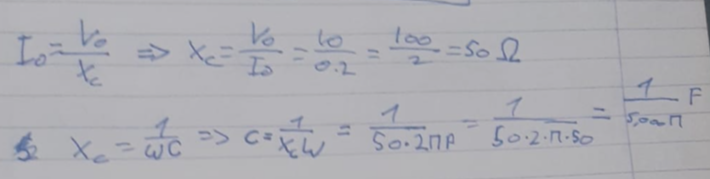 I₀ = V₀/Xc ⇒ Xc = V₀/I₀ = 10/0.2 = 100/2 = 50 Ω
Xc = 1/ωC ⇒ C = 1/Xcω = 1/50·2πf = 1/50·2·π·50 = 1/5,000π F